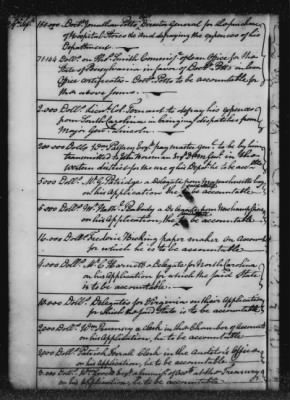 150,000 Doll.s Jonathan Potts Director General for the purchase
of Hospital Stores &c and defraying the expences of his
Department
71144 Doll.s on Tho.s Smith Commiss.r of Loan Office for the
State of Pennsylvania in favor of Doct.r Potts in loan
Office certificates. Doct.r Potts to be accountable for
the above sums.
2,000 Doll.s Lieu.t Col. Ternant to defray his expences
from South Carolina in bringing dispatches from
Major Gen.l Lincoln.
200,000 Doll.s W.m Palfrey Esq.r pay master gen.l to be by him
transmitted to John Pierce in the
western district for the use of his Dep.t he to be accountable
5,000 Doll.s M.r G. Partridge a delegate from Massachusetts bay
on his application the State to be accountable.
5,000 Doll.s M.r Nath.l Peabody a delegate from New hampshire
on his application, the State to be accountable.
10,000 Doll.s Frederic Bicking paper maker on Account
for which he is to be accountable.
4,000 Doll.s M.r C Harnett a Delegate for North Carolina
on his application for which the said State
is to be accountable.
10,000 Doll.s Delegates for Virginia on their application
for which the said State is to be accountable.
2,000 Doll.s W.m a Clerk in the Chamber of Accounts
on his application, he to be accountable.
2,000 Doll.s Patrick Clerk in the Auditor's Office
on his application, he to be accountable.
3,000 Doll.s W.m of Acco.ts at the Treasury
on his application; he to be accountable.